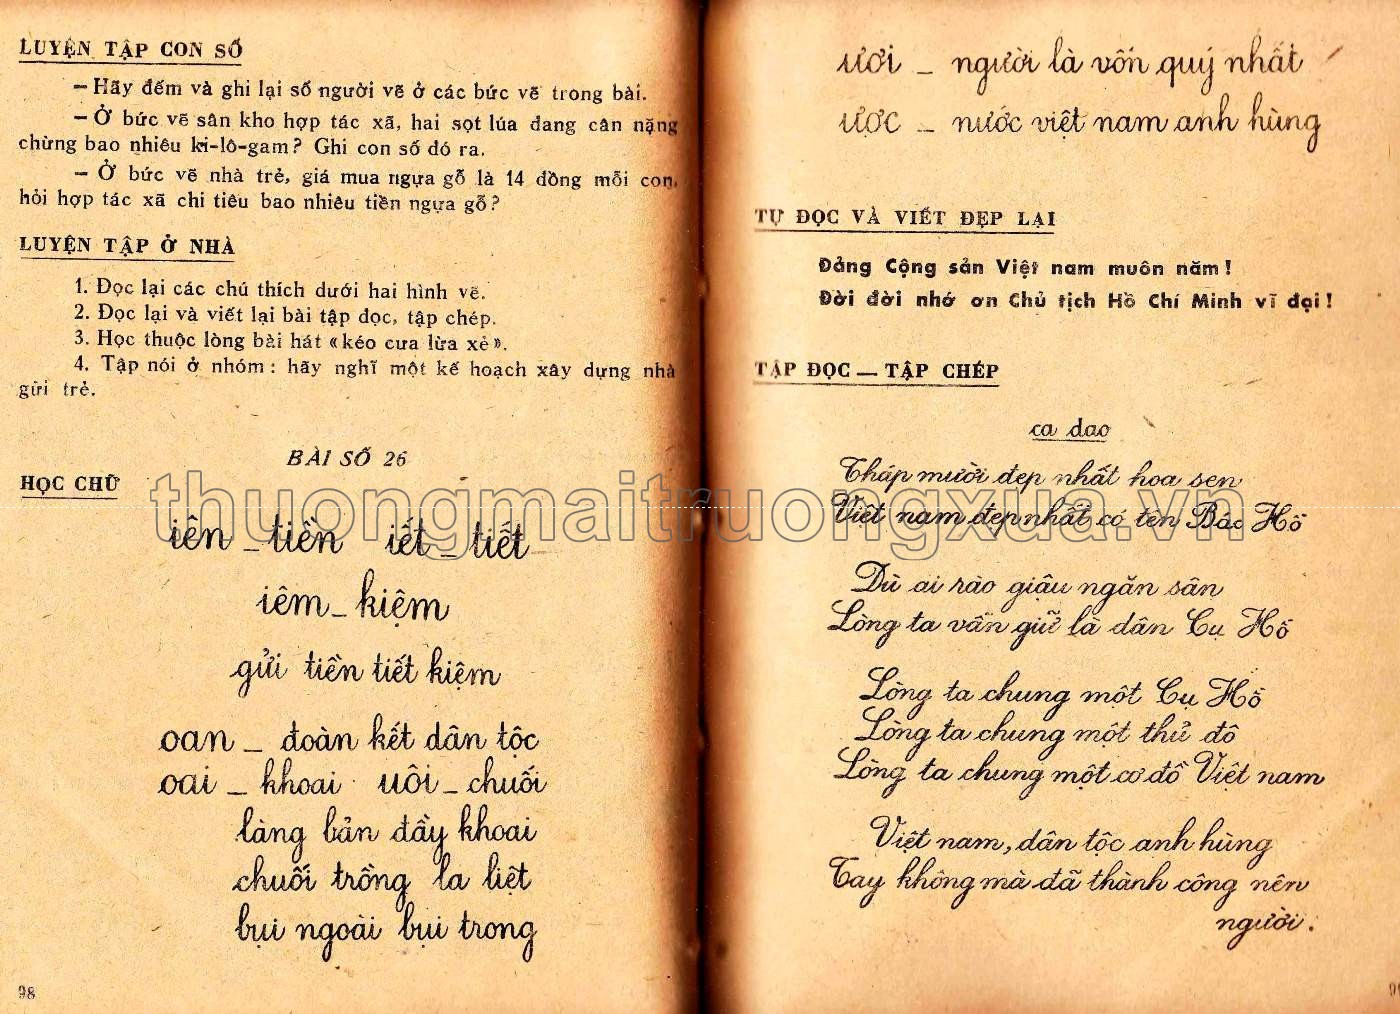 LUYỆN TẬP CON SỐ
— Hãy đếm và ghi lại số người vẽ ở các bức vẽ trong bài.
— Ở bức vẽ sân kho hợp tác xã, hai sọt lúa đang cân nặng
chừng bao nhiêu ki-lô-gam? Ghi con số đó ra.
— Ở bức vẽ nhà trẻ, giá mua ngựa gỗ là 14 đồng mỗi con,
hỏi hợp tác xã chi tiêu bao nhiêu tiền ngựa gỗ?
LUYỆN TẬP Ở NHÀ
1. Đọc lại các chú thích dưới hai hình vẽ.
2. Đọc lại và viết lại bài tập đọc, tập chép.
3. Học thuộc lòng bài hát «kéo cưa lừa xẻ».
4. Tập nói ở nhóm: hãy nghĩ một kế hoạch xây dựng nhà
gửi trẻ.
BÀI SỐ 26
HỌC CHỮ
iên _ tiền iết _ tiết
iêm _ kiệm
gửi tiền tiết kiệm
oan _ đoàn kết dân tộc
oai _ khoai uôi _ chuối
làng bản đầy khoai
chuối trồng la liệt
bụi ngoài bụi trong
98
ươi _ người là vốn quý nhất
ược _ nước việt nam anh hùng
TỰ ĐỌC VÀ VIẾT ĐẸP LẠI
Đảng Cộng sản Việt nam muôn năm!
Đời đời nhớ ơn Chủ tịch Hồ Chí Minh vĩ đại!
TẬP ĐỌC — TẬP CHÉP
ca dao
Tháp mười đẹp nhất hoa sen
Việt nam đẹp nhất có tên Bác Hồ
Dù ai rào giậu ngăn sân
Lòng ta vẫn giữ là dân Cụ Hồ
Lòng ta chung một Cụ Hồ
Lòng ta chung một thủ đô
Lòng ta chung một cơ đồ Việt nam
Việt nam, dân tộc anh hùng
Tay không mà đã thành công nên
người.
thuongmaitruongxua.vn